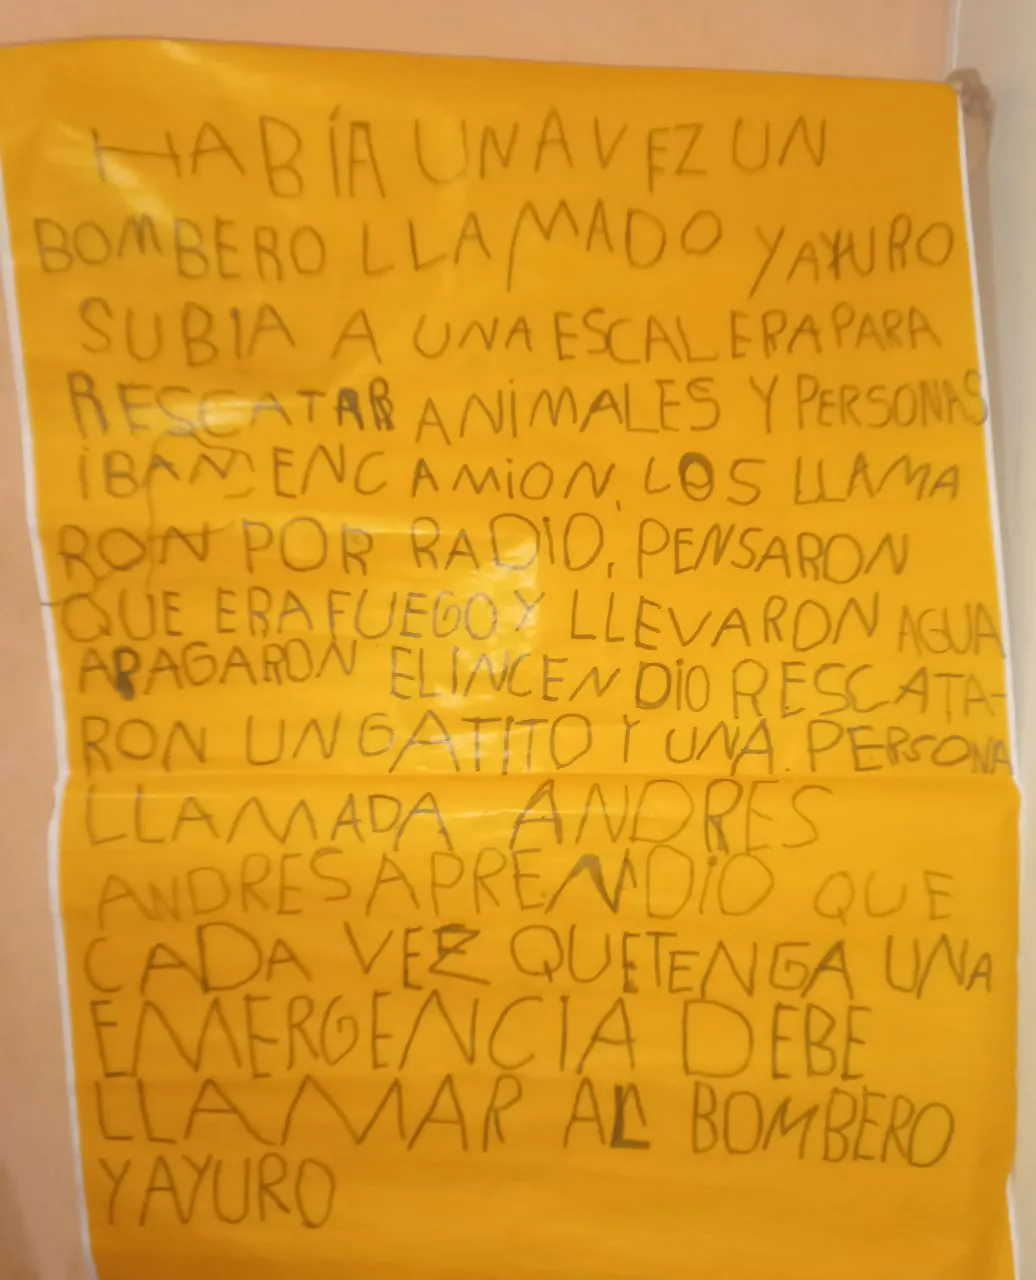 HABÍA UNA VEZ UN
BOMBERO LLAMADO YAYURO
SUBIA A UNA ESCALERA PARA
RESCATAR ANIMALES Y PERSONAS
IBAN EN CAMION, LOS LLAMA
RON POR RADIO, PENSARON
QUE ERA FUEGO Y LLEVARON AGUA
APAGARON EL INCENDIO RESCATA-
RON UN GATITO Y UNA PERSONA
LLAMADA ANDRES
ANDRES APRENDIO QUE
CADA VEZ QUE TENGA UNA
EMERGENCIA DEBE
LLAMAR AL BOMBERO
YAYURO